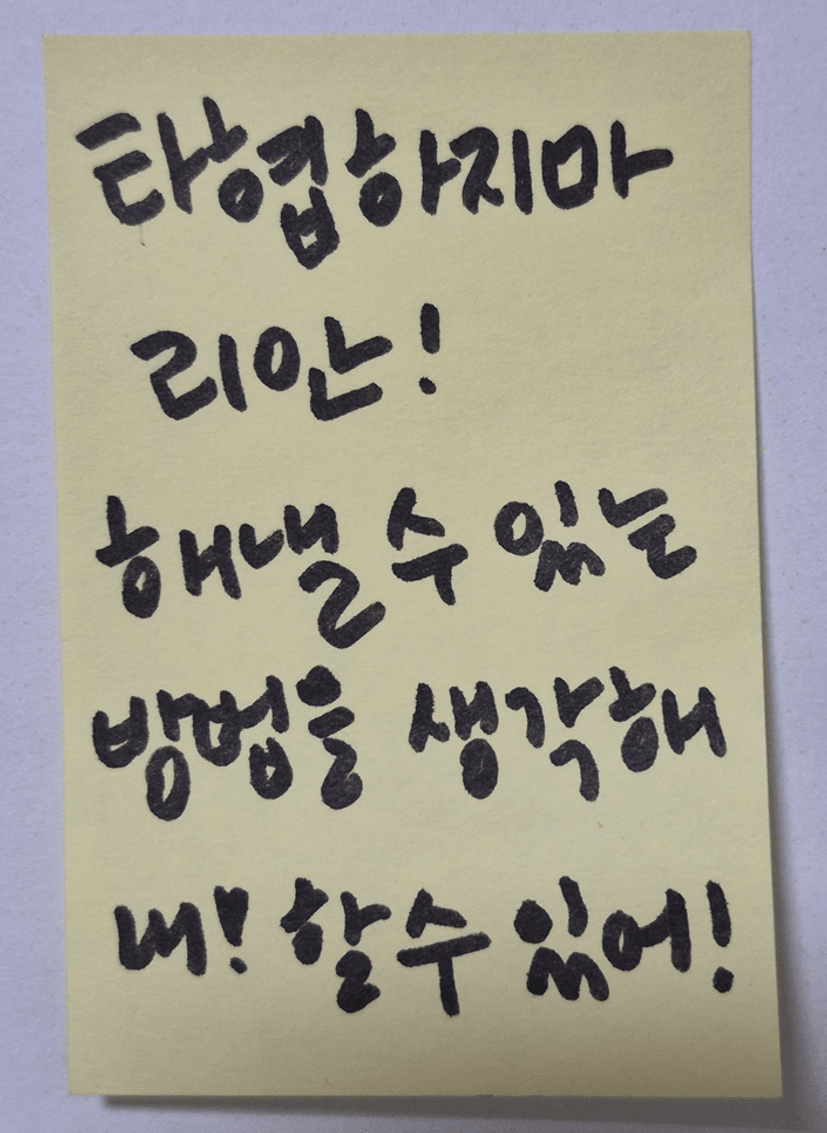 타협하지마
리안!
해낼 수 있는
방법을 생각해
내! 할 수 있어!